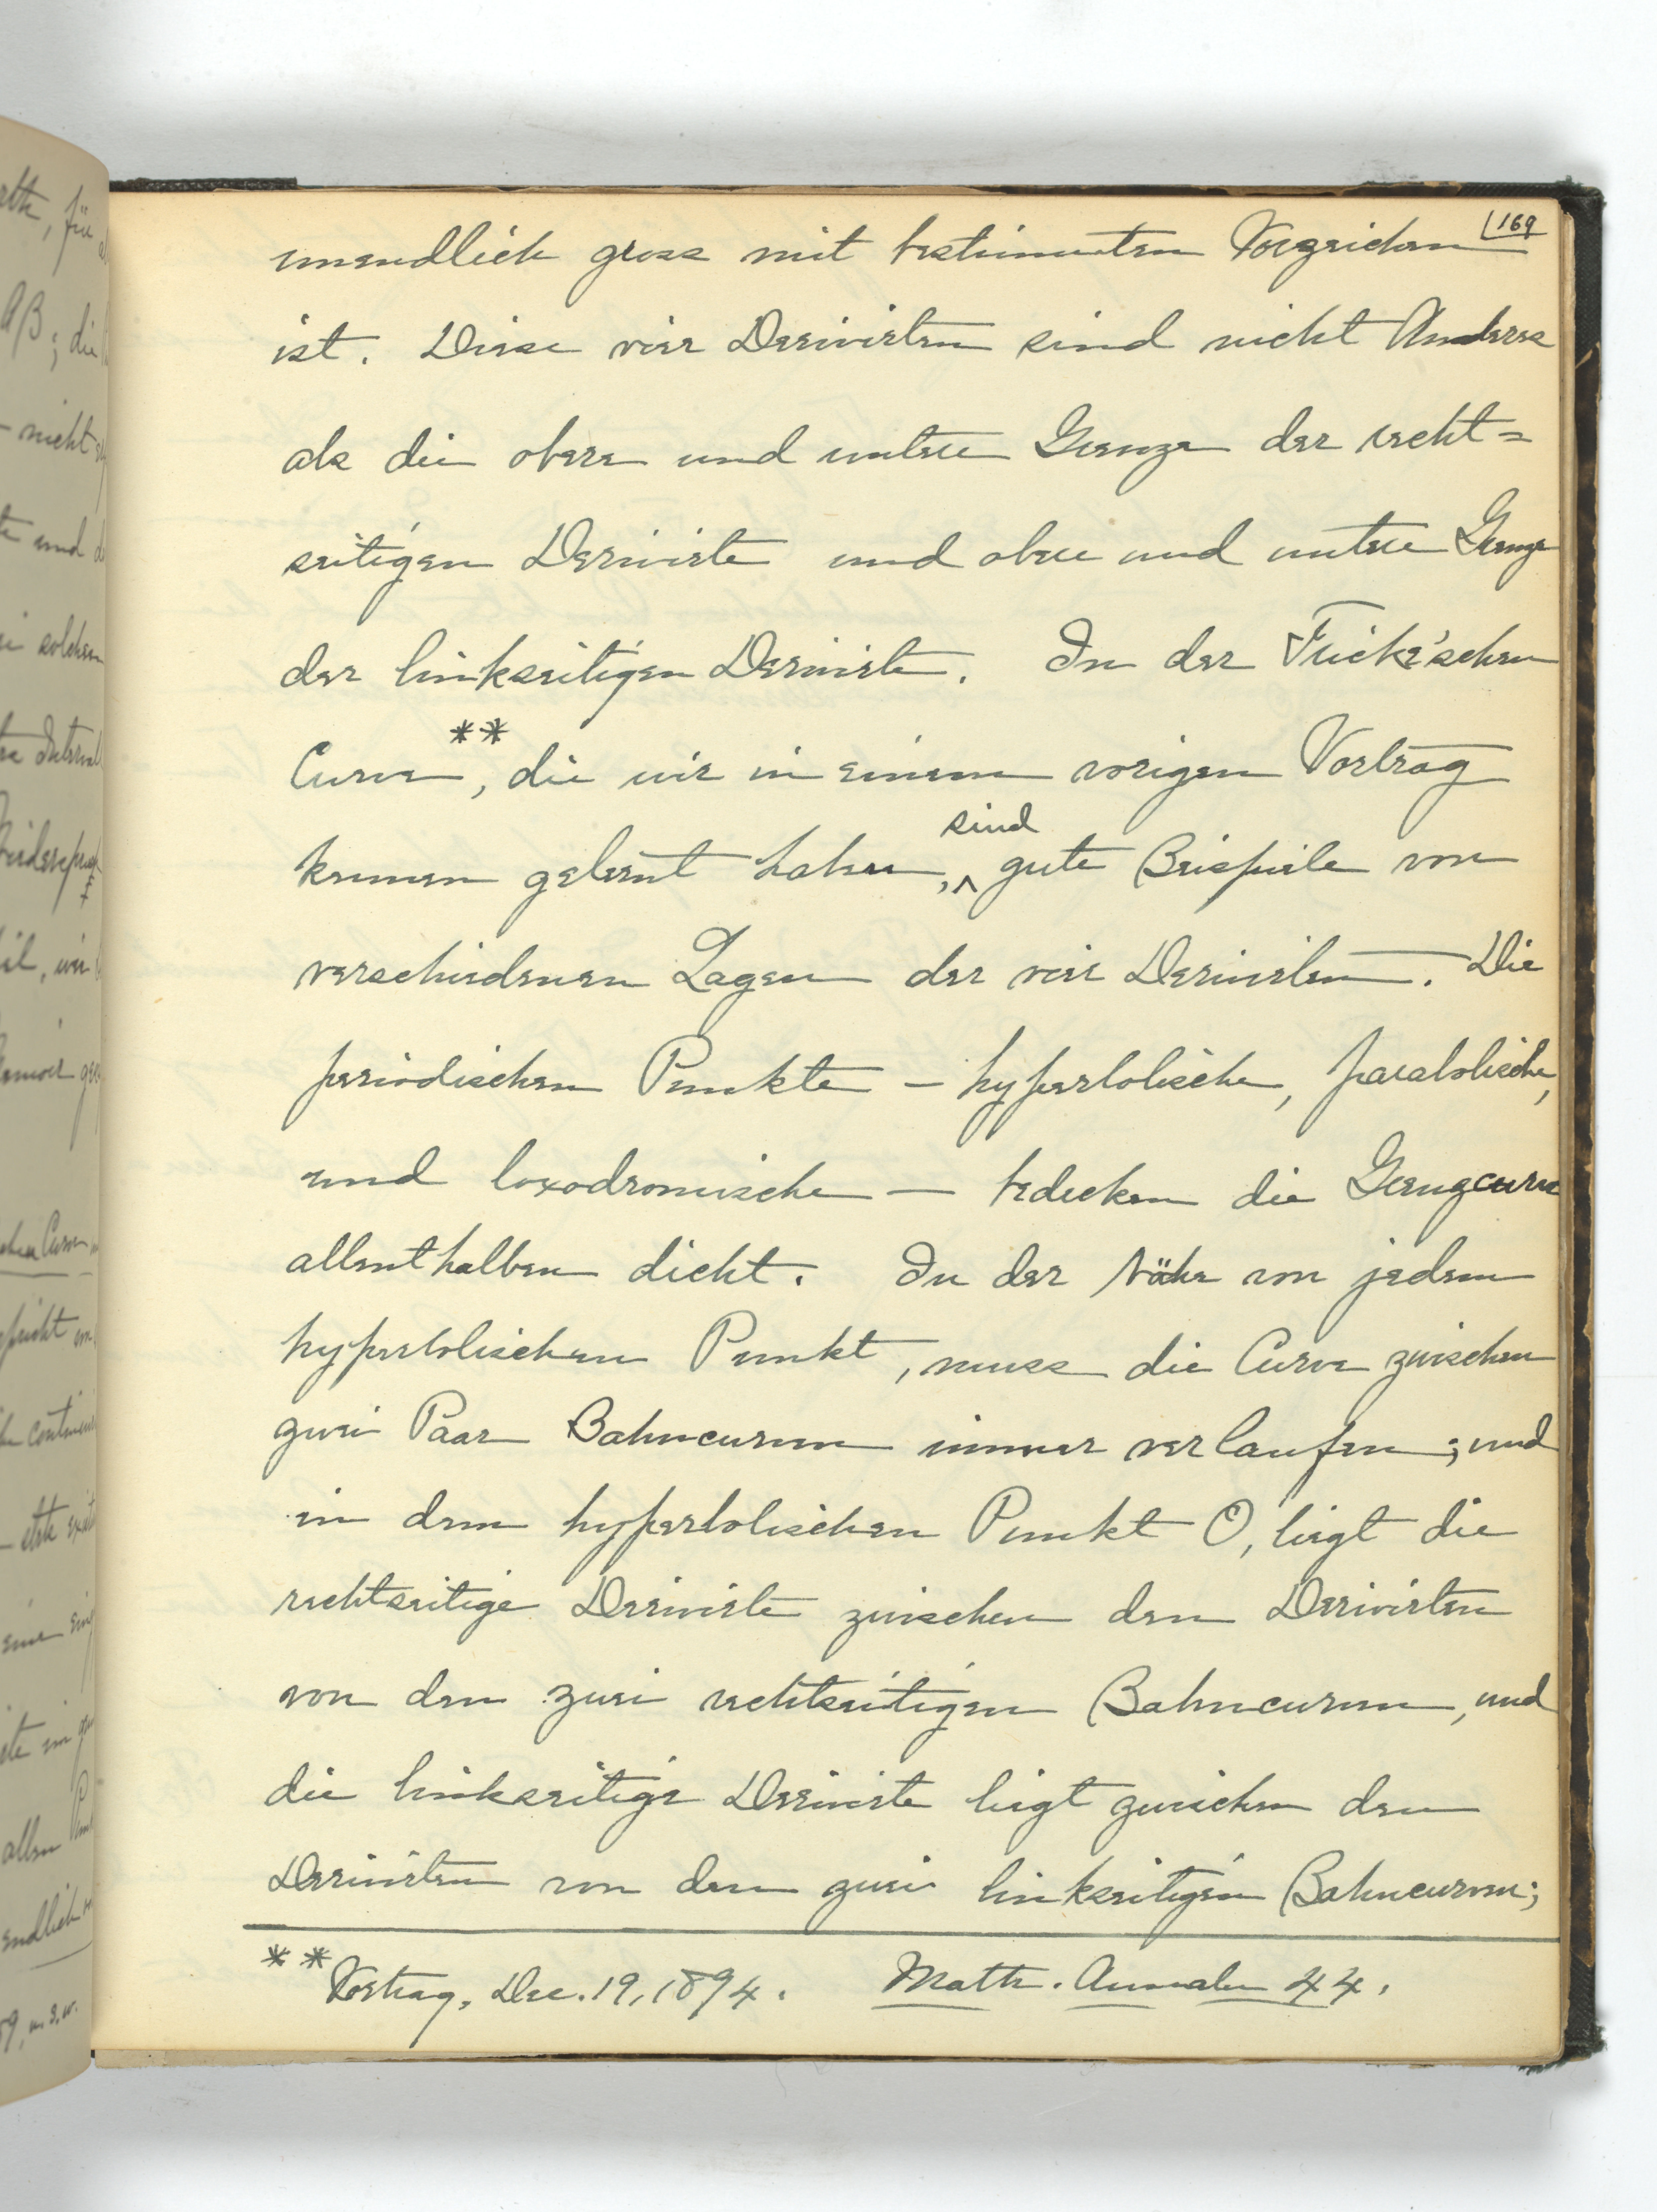 169
unendlich gross mit bestimmten Vorzeichen
ist. Diese vier Derivirten sind nicht Anderes
als die obere und untere Grenze der recht=
seitigen Derivirte und obere und untere Grenze
der linkseitigen Derivirte. In der Fricke'schen
Curve**, die wir in einem vorigen Vortrag
sind
kennen gelernt haben, ^ gute Beispiele von
verschiedenen Lagen der vier Derivirten. Die
periodischen Punkte – hyperbolische, parabolische,
und loxodromische – bedecken die Grenzcurve
allenthalben dicht. In der Nähe von jedem
hyperbolischen Punkt, muss die Curve zwischen
zwei Paar Bahncurven immer verlaufen; und
in dem hyperbolischen Punkt O, liegt die
rechtseitige Derivirte zwischen den Derivirten
von den zwei rechtseitigen Bahncurven, und
die linkseitige Derivirte liegt zwischen den
Derivirten von den zwei linkseitigen Bahncurven;
** Vortrag, Dec. 19, 1894. Math. Annalen 44.